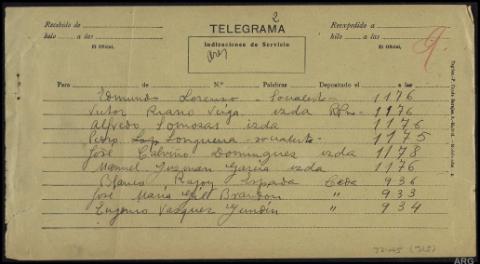 Recibido de Reexpedido a
TELEGRAMA 2
hilo a las hilo a las
El Oficial, El Oficial,
Indicaciones de Servicio
Para de N.º Palabras Depositado el a las
Edmundo Lorenzo - Socialista - 1176
Victor Riano Veiga izda Rpno - 1176
Alfredo Somozas izda 1176
Pedro Longueira - socialista - 1175
José Calviño Domingues izda 1178
Manuel Guzman García izda 1176
Blanco Rajoy Espada Ceda 936
José María Gill Brandon " 933
Eugenio Vazquez Gundin " 934
ARG